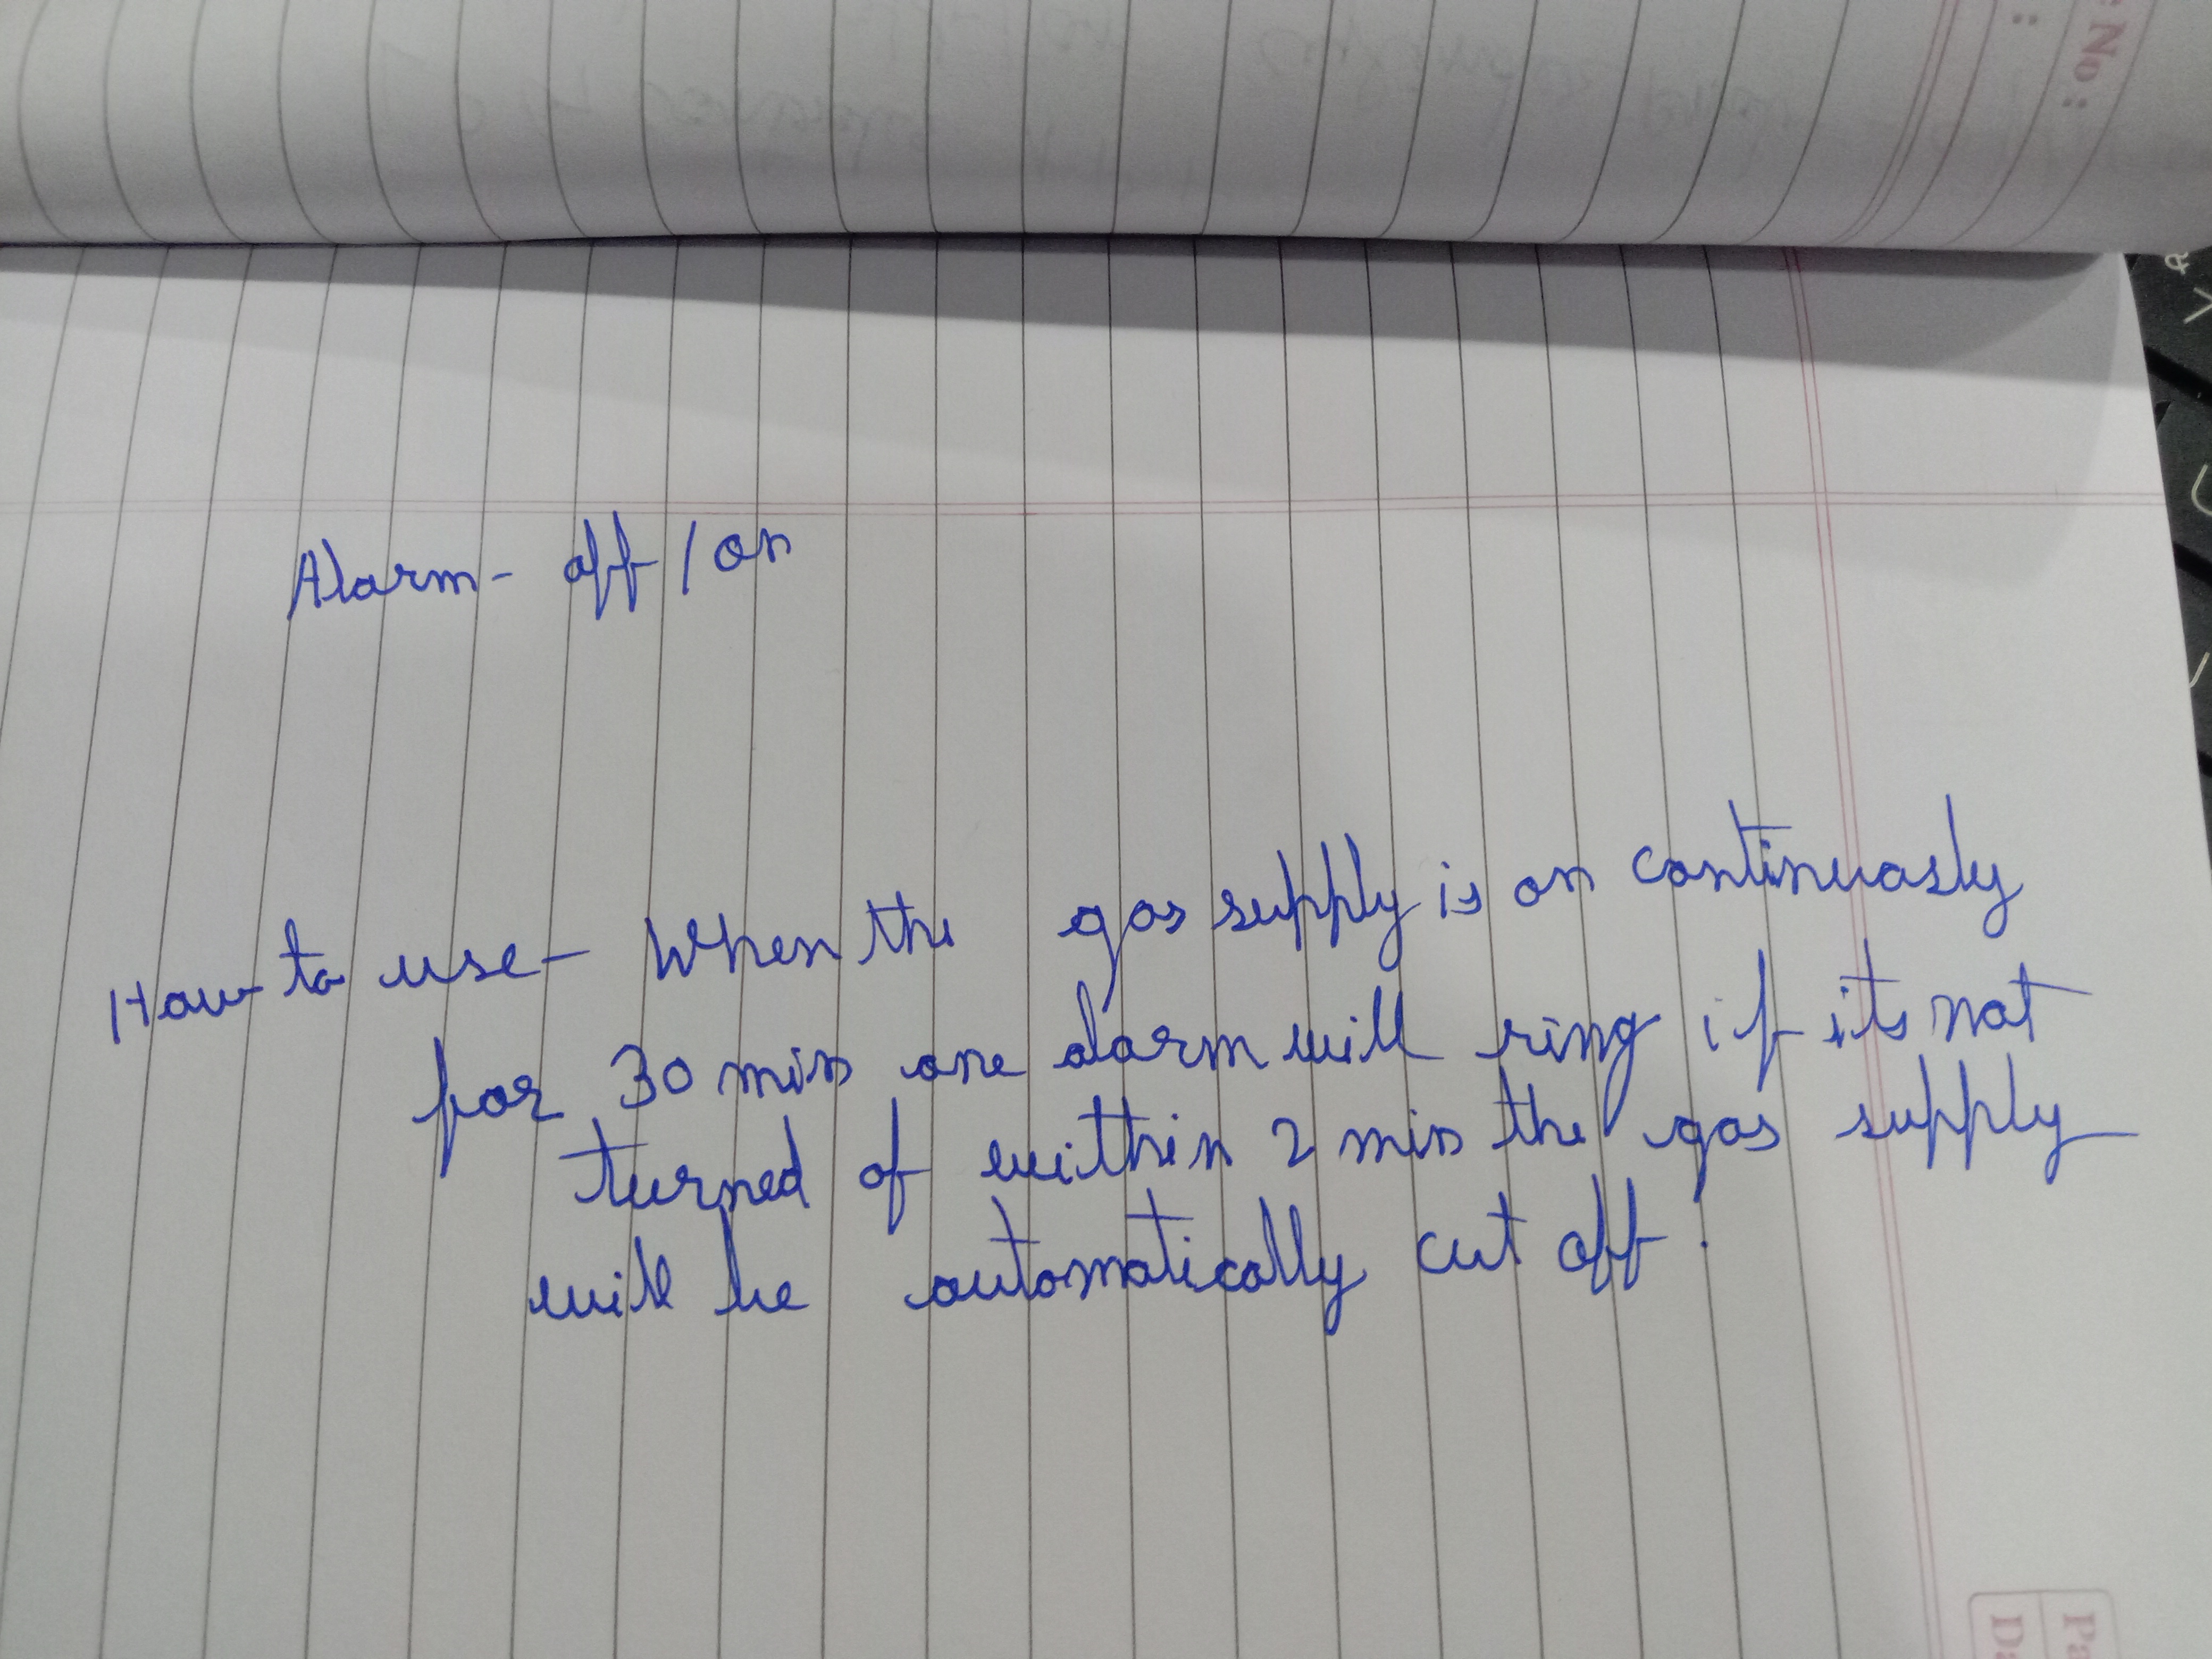 No:
:
Alarm- off / on
How to use - When the gas supply is on continuasly
for 30 min one alarm will ring if its not
turned of within 2 min the gas supply
will be automatically cut off.
Pa
Da